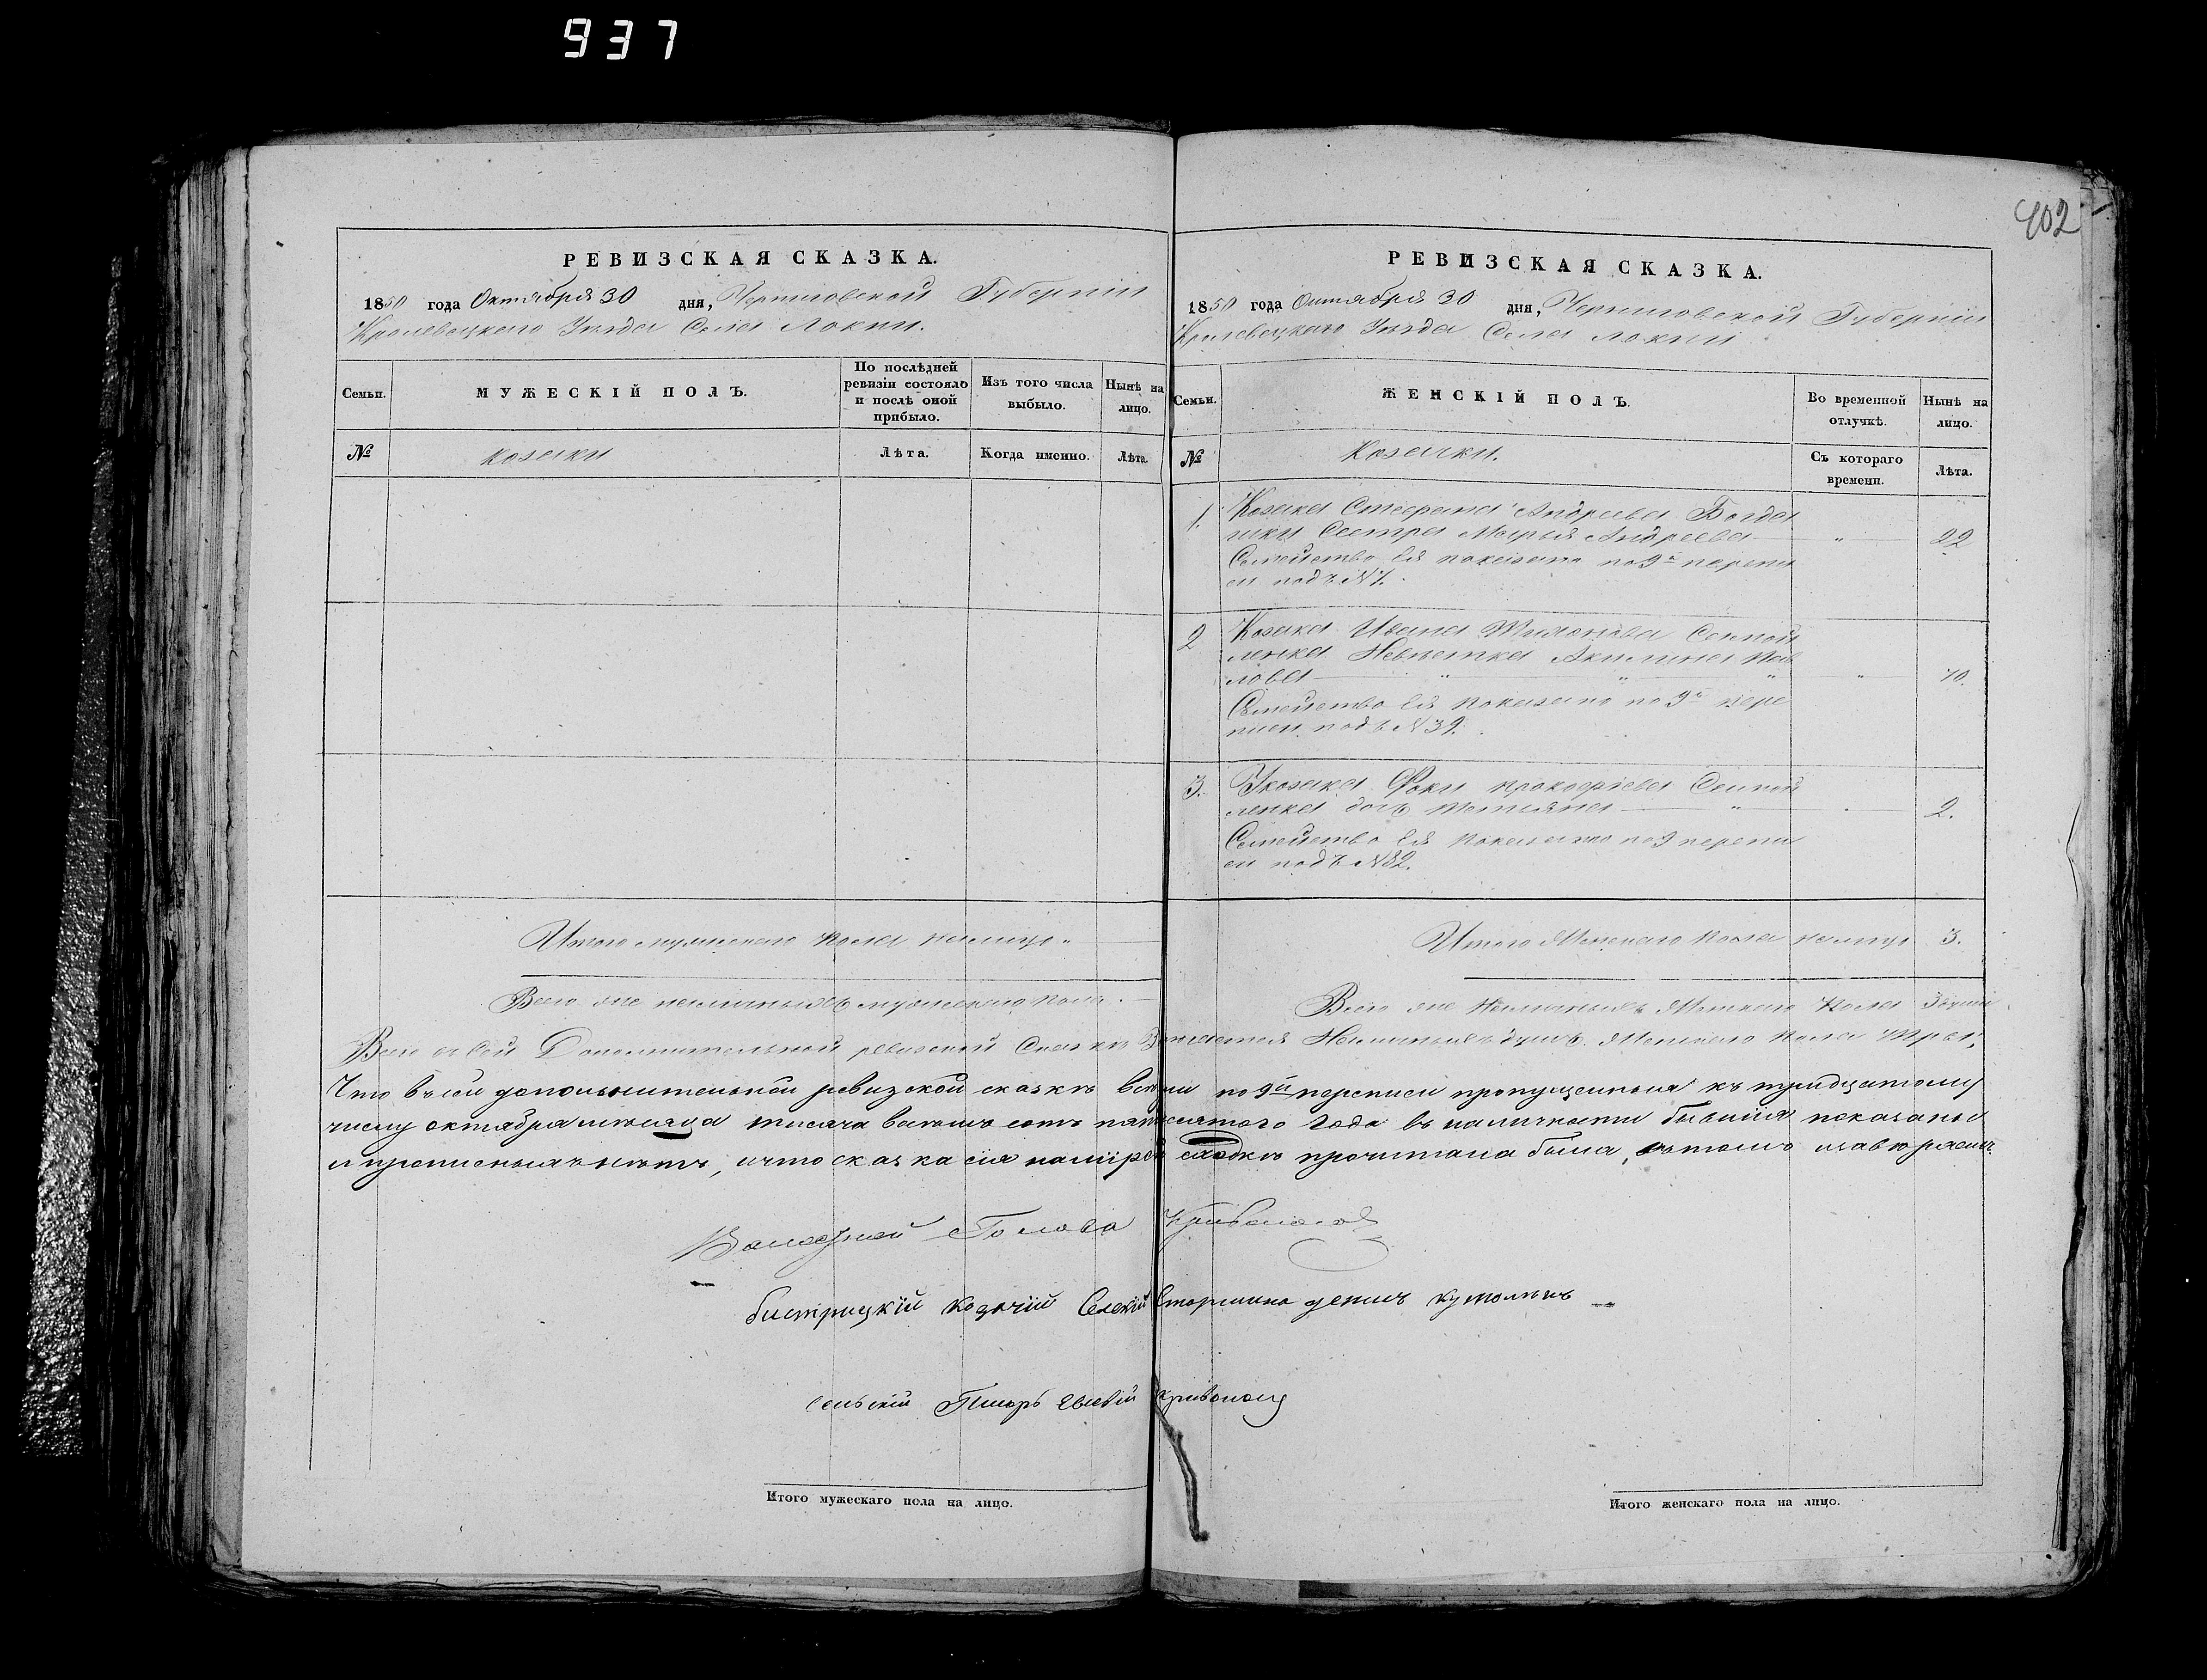 937
402
РЕВИЗСКАЯ СКАЗКА.
1850 года Октября 30 дня, Черниговской Губерніи
Кролевецкаго Уѣзда Села Локни.
Семьи.
МУЖЕСКІЙ ПОЛЪ.
По послѣдней
ревизіи состояло
и послѣ оной
прибыло.
Изъ того числа
выбыло.
Нынѣ на
лицо.
№
козаки
Лѣта.
Когда именно.
Лѣта.
Итого мужескаго пола налицо "
Всего же наличныхъ мужескаго пола.
РЕВИЗСКАЯ СКАЗКА.
1850 года Октября 30 дня, Черниговской Губерніи
Кролевецкаго Уѣзда Села Локни
Семьи.
ЖЕНСКІЙ ПОЛЪ.
Во временной
отлучкѣ.
Нынѣ на
лицо.
№
Козачки.
Съ котораго
времени.
Лѣта.
1. Козака Стефана Андреева Богда
шки Сестра Марья Андреева " 22
Семейство ея показано по 9й перепи
си подъ №1.
2 Козака Ивана Самой
ленка Невѣстка Акилина Пав
лова " " " " 70.
Семейство ея показано по 9й пере
писи подъ №39.
3. Козака Фоки Прокофіева Самой
ленка дочь Татьяна " 2.
Семейство ея показано по 9 перепи
си подъ №82.
Итого Женскаго пола налицо 3.
Всего же Наличныхъ Женскаго Пола 3 души
Всего въ сей Дополнительной ревизской Сказкѣ Наличныхъ душъ Женскаго пола Три,
Что въ сей дополнительной ревизской сказкѣ всѣ по 9й переписи пропущенныя къ тридцатому
числу октября мѣсяца тисяча восемъ сотъ пятдесятого года въ наличности бывшія показаны
и прописныхъ нѣтъ, и что сказка сія на мірской сходкѣ прочитана была, въ томъ
Волостной Голова
бистрицкій козачій Селскій Старшина
селскій Писаръ
Итого мужескаго пола на лицо.
Итого женскаго пола на лицо.